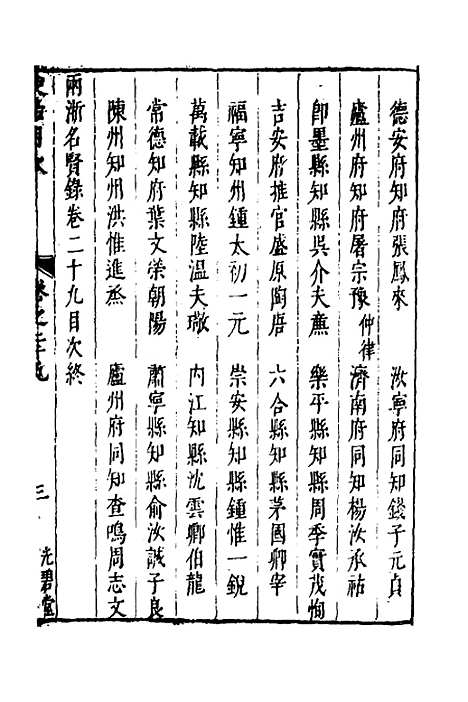 德安府知府張鳳來　汝寧府同知錢子元貞
廬州府知府屠宗豫仲律　濟南府同知楊汝承祜
即墨縣知縣吳介夫廌　樂平縣知縣周季實茂恂
吉安府推官盛原陶唐　六合縣知縣茅國卿宰
福寧知州鍾太初一元　崇安縣知縣鍾惟一銳
萬載縣知縣陸溫夫璥　內江知縣沈雲卿伯龍
常德知府葉文榮朝陽　肅寧縣知縣俞汝誠子良
陳州知州洪惟進烝　廬州府同知查鳴周志文
兩浙名賢錄卷二十九目次終
卷之二十九
三
光碧堂